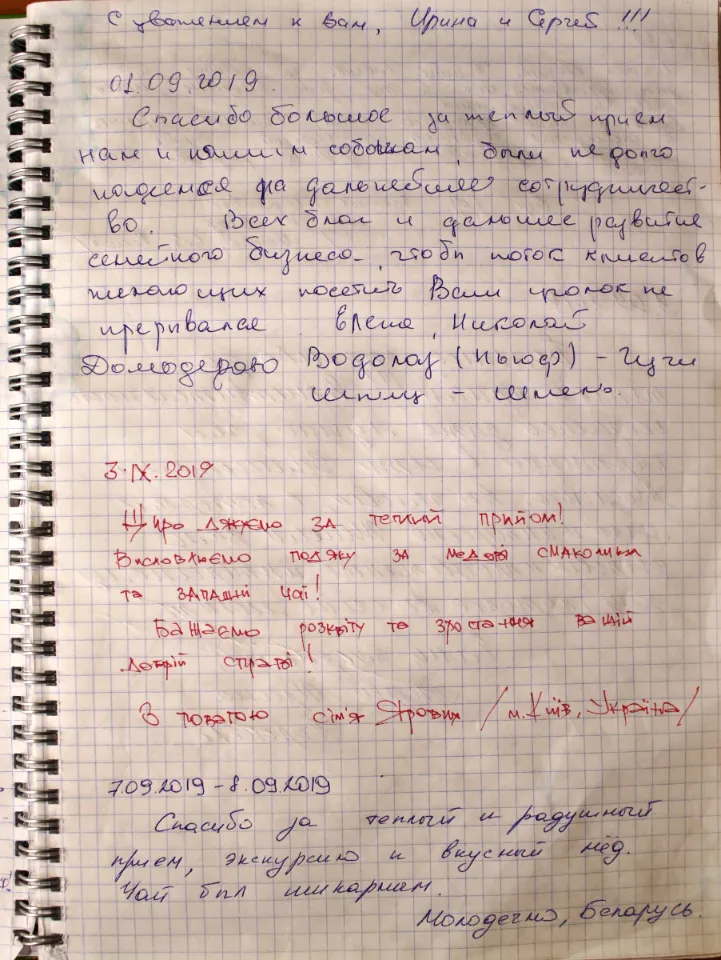 С уважением к вам, Ирина и Сергей !!!
01.09.2019.
Спасибо большое за теплый прием
нам и нашим собакам, были недолго
надеемся на дальнейшее сотрудничест-
во. Всех благ и дальшее развитие
семейного бизнеса, чтобы поток клиентов
желающих посетить Ваш уголок не
прерывался. Елена, Николай
Водолаз (Ньюф) -
шпиц - Шмель.
3.IX.2019
Щиро дякуємо за теплий прийом!
Висловлюємо подяку за медові смаколики
та западні чаї!
Бажаємо розквіту та зростання вашій
добрій справі!
З повагою сім'я Ярових /м. Київ, Україна/
7.09.2019 - 8.09.2019
Спасибо за теплый и радушный
прием, экскурсию и вкусный мёд.
Чай был шикарным.
Молодечно, Беларусь.